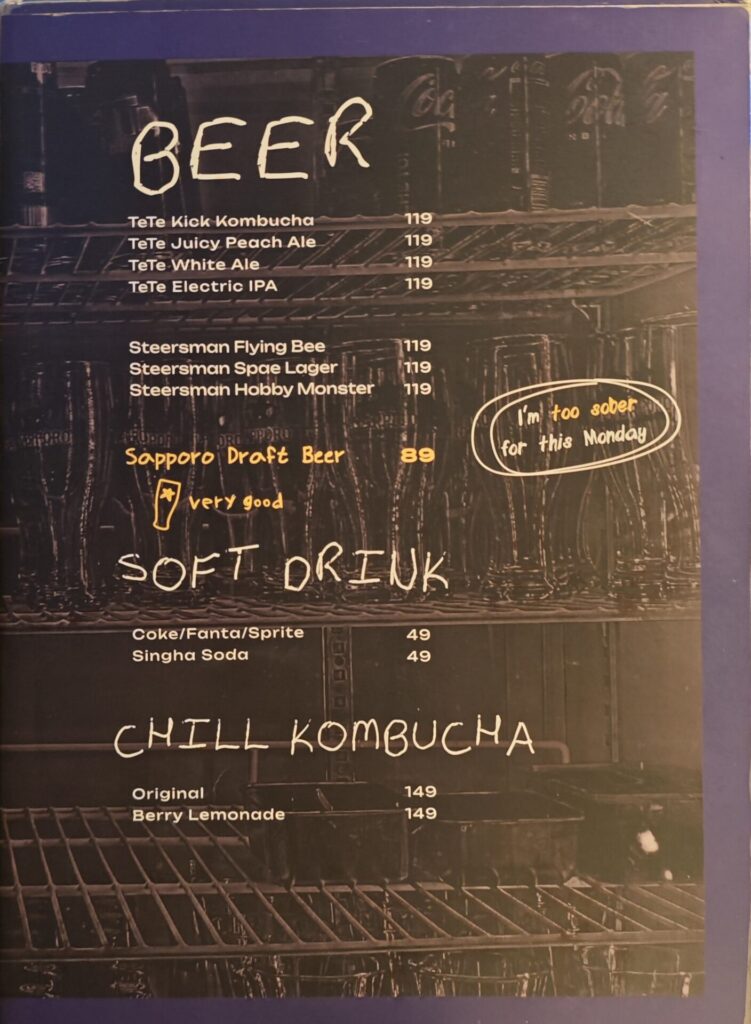 BEER
TeTe Kick Kombucha 119
TeTe Juicy Peach Ale 119
TeTe White Ale 119
TeTe Electric IPA 119
Steersman Flying Bee 119
Steersman Spae Lager 119
Steersman Hobby Monster 119
I'm too sober
for this Monday
Sapporo Draft Beer 89
very good
SOFT DRINK
Coke/Fanta/Sprite 49
Singha Soda 49
CHILL KOMBUCHA
Original 149
Berry Lemonade 149